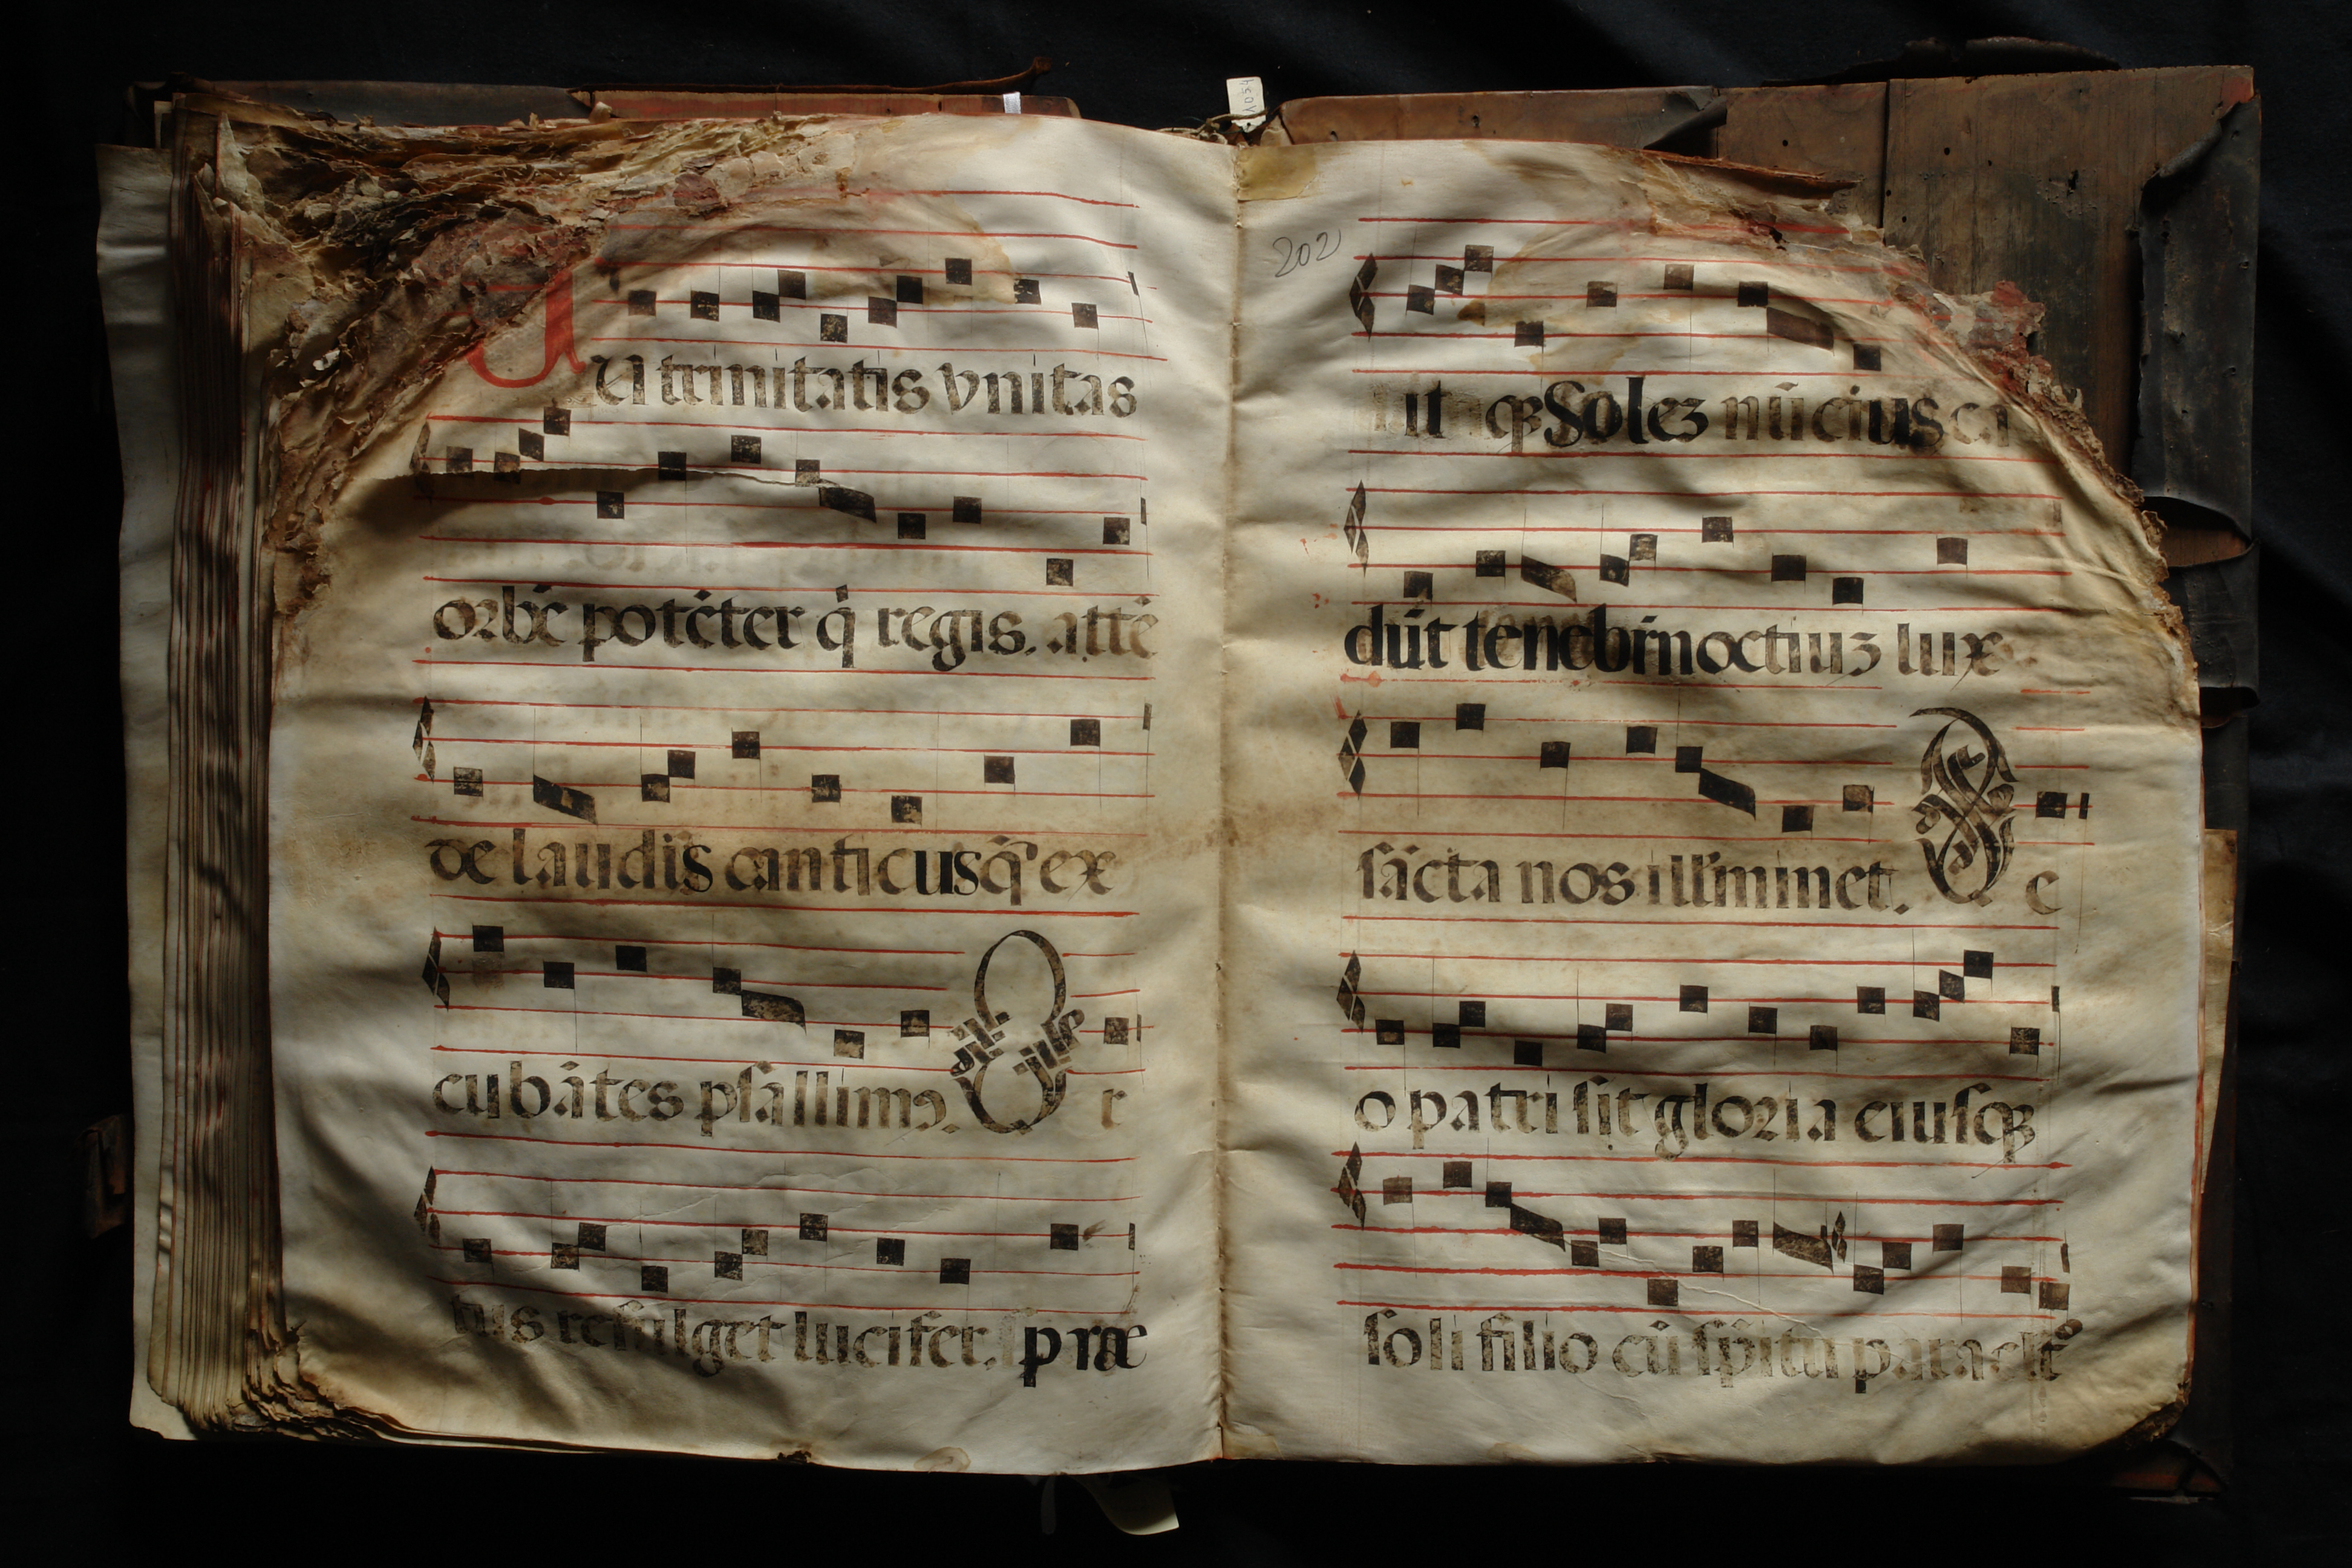 TU trinitatis vnitas
orbē potēter q̄ regis. attē
de laudis canticus q̄ ex
cubātes psallimꝯ. O r
tus refulget lucifer. præ
202
it qꝫ Solez nūcius ca
dūt tenebrinoctiuꝫ lux
sācta nos illuminet. D e
o patri sit gloria eiusqꝫ
soli filio cū sp̄itu paraclito